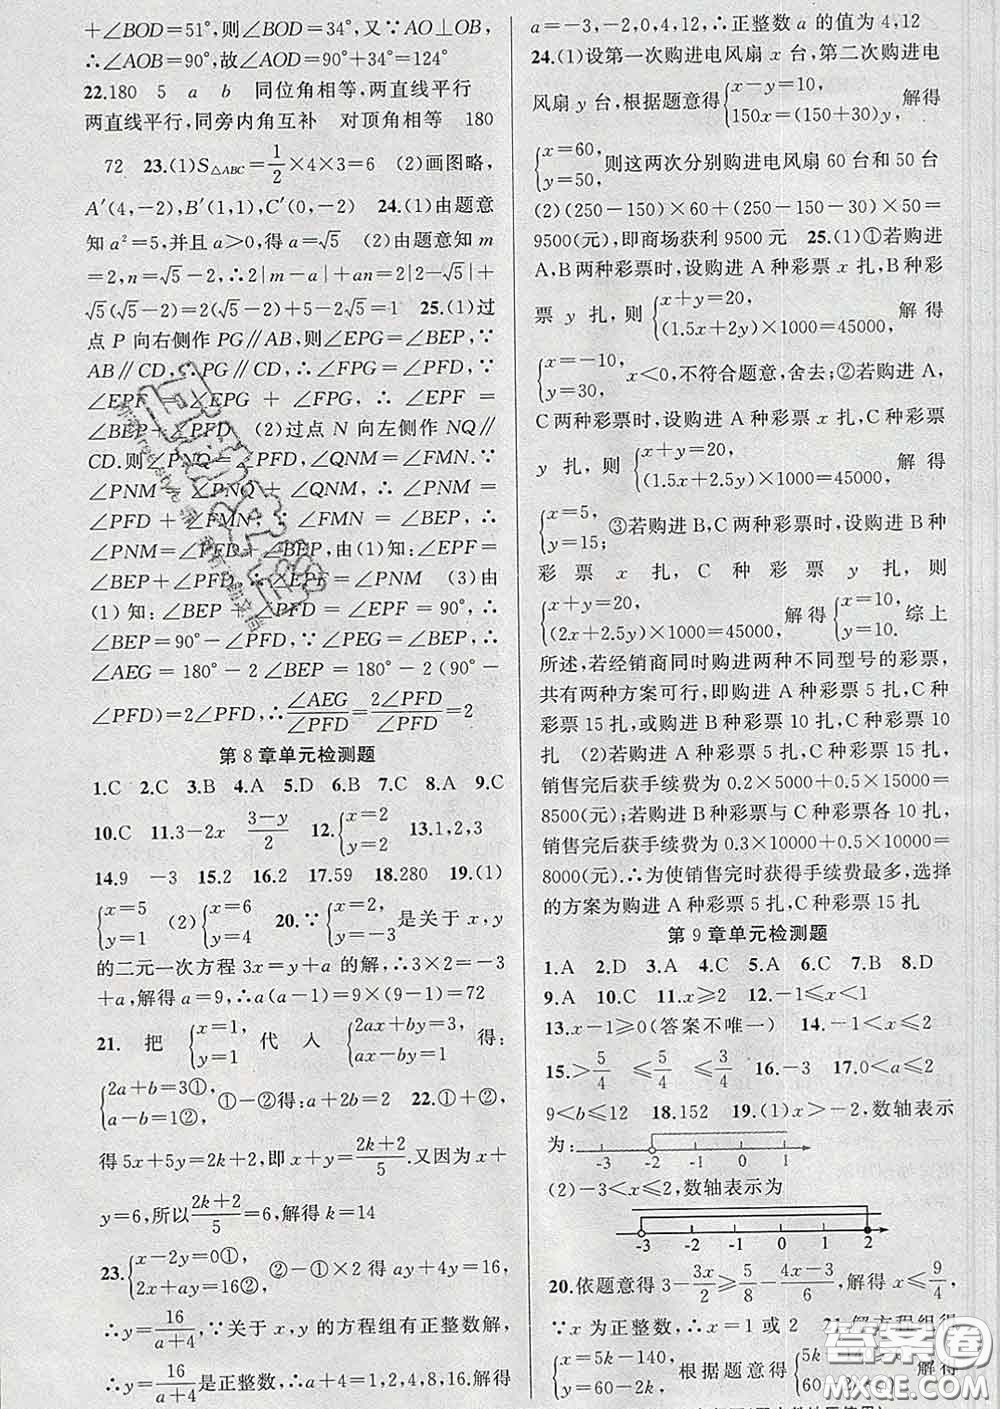 +∠BOD=51°,则∠BOD=34°,又∵AO⊥OB,
∴∠AOB=90°,故∠AOD=90°+34°=124°
22.180 5 a b 同位角相等,两直线平行
两直线平行,同旁内角互补 对顶角相等 180
72 23.(1)S△ABC=1/2×4×3=6 (2)画图略,
A′(4,-2),B′(1,1),C′(0,-2) 24.(1)由题意
知a²=5,并且a>0,得a=√5 (2)由题意知m
=2,n=√5-2,∴2|m-a|+an=2|2-√5|+
√5(√5-2)=2(√5-2)+5-2√5=1 25.(1)过
点P向右侧作PG∥AB,则∠EPG=∠BEP,∵
AB∥CD,∴PG∥CD,∴∠FPG=∠PFD,∵
∠EPF=∠EPG+∠FPG,∴∠EPF=
∠BEP+∠PFD (2)过点N向左侧作NQ∥
CD.则∠PNQ=∠PFD,∠QNM=∠FMN.∵
∠PNM=∠PNQ+∠QNM,∴∠PNM=
∠PFD+∠FMN.∵∠FMN=∠BEP,∴
∠PNM=∠PFD+∠BEP,由(1)知:∠EPF=
∠BEP+∠PFD,∴∠EPF=∠PNM (3)由
(1)知:∠BEP+∠PFD=∠EPF=90°,∴
∠BEP=90°-∠PFD,∵∠PEG=∠BEP,∴
∠AEG=180°-2∠BEP=180°-2(90°-
∠PFD)=2∠PFD,∴∠AEG/∠PFD=2∠PFD/∠PFD=2
第8章单元检测题
1.C 2.C 3.B 4.A 5.D 6.B 7.C 8.A 9.C
10.C 11.3-2x (3-y)/2 12.{x=2 y=2 13.1,2,3
14.9 -3 15.2 16.2 17.59 18.280 19.(1)
{x=5 y=1 (2){x=6 y=4 20.∵{x=2, y=-3是关于x,y
的二元一次方程3x=y+a的解,∴3×2=-3
+a,解得a=9,∴a(a-1)=9×(9-1)=72
21.把{x=1, y=1代入{2ax+by=3, ax-by=1得:
{2a+b=3①, a-b=1②,①-②得:a+2b=2 22.①+②,
得5x+5y=2k+2,即x+y=(2k+2)/5.又因为x+
y=6,所以(2k+2)/5=6,解得k=14
23.{x-2y=0①, 2x+ay=16②,②-①×2得ay+4y=16,
∴y=16/(a+4),∵关于x,y的方程组有正整数解,
∴y=16/(a+4)是正整数,∴a+4=1,2,4,8,16.解得
a=-3,-2,0,4,12,∴正整数a的值为4,12
24.(1)设第一次购进电风扇x台,第二次购进电
风扇y台,根据题意得{x-y=10, 150x=(150+30)y,解得
{x=60, y=50,则这两次分别购进电风扇60台和50台
(2)(250-150)×60+(250-150-30)×50=
9500(元),即商场获利9500元 25.(1)①若购进
A,B两种彩票时,设购进A种彩票x扎,B种彩
票y扎,则{x+y=20, (1.5x+2y)×1000=45000,解得
{x=-10, y=30,x<0,不符合题意,舍去;②若购进A,
C两种彩票时,设购进A种彩票x扎,C种彩票
y扎,则{x+y=20, (1.5x+2.5y)×1000=45000,解得
{x=5, y=15;③若购进B,C两种彩票时,设购进B种
彩票x扎,C种彩票y扎,则
{x+y=20, (2x+2.5y)×1000=45000,解得{x=10, y=10.综上
所述,若经销商同时购进两种不同型号的彩票,
共有两种方案可行,即购进A种彩票5扎,C种
彩票15扎,或购进B种彩票10扎,C种彩票10
扎 (2)若购进A种彩票5扎,C种彩票15扎,
销售完后获手续费为0.2×5000+0.5×15000=
8500(元);若购进B种彩票与C种彩票各10扎,
销售完后获手续费为0.3×10000+0.5×10000=
8000(元).∴为使销售完时获得手续费最多,选择
的方案为购进A种彩票5扎,C种彩票15扎
第9章单元检测题
1.A 2.D 3.A 4.C 5.A 6.C 7.B 8.D
9.A 10.C 11.x≥2 12.-1≤x<1
13.x-1≥0(答案不唯一) 14.-1<x≤2
15.>5/4 ≤5/4 ≤3/4 16.-3 17.0<a≤2
9<b≤12 18.152 19.(1)x>-2,数轴表示
为: -3 -2 -1 0 1
(2)-3<x≤2,数轴表示为
-3 -2 -1 0 1 2
20.依题意得3-3x/2≥5/8-(4x-3)/6,解得x≤9/4,
∵x为正整数,∴x=1或2 21.解方程组得
{x=5k-140, y=60-2k,根据题意得
答案圈
MXQE.COM